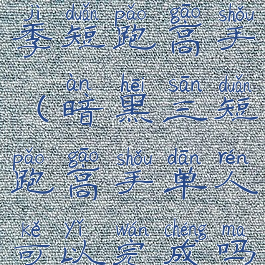 jì duǎn pǎo gāo shǒu
季短跑高手
àn hēi sān duǎn
(暗黑三短
pǎo gāo shǒu dān rén
跑高手单人
kě yǐ wán chéng ma
可以完成吗